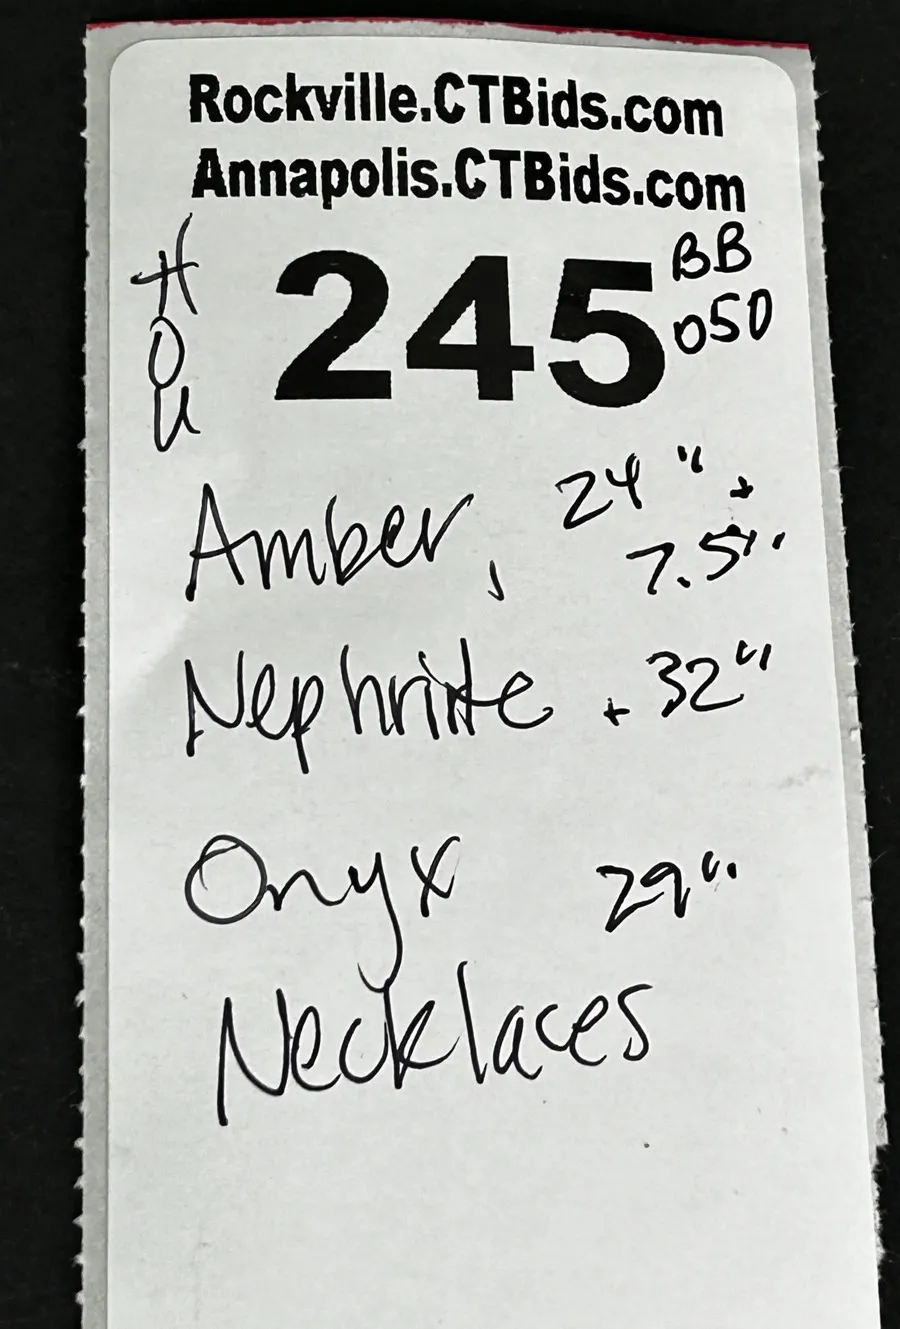 Rockville.CTBids.com
Annapolis.CTBids.com
HOU
245
BB
050
Amber, 24" +
7.5"
Nephrite + 32"
Onyx 29"
Necklaces